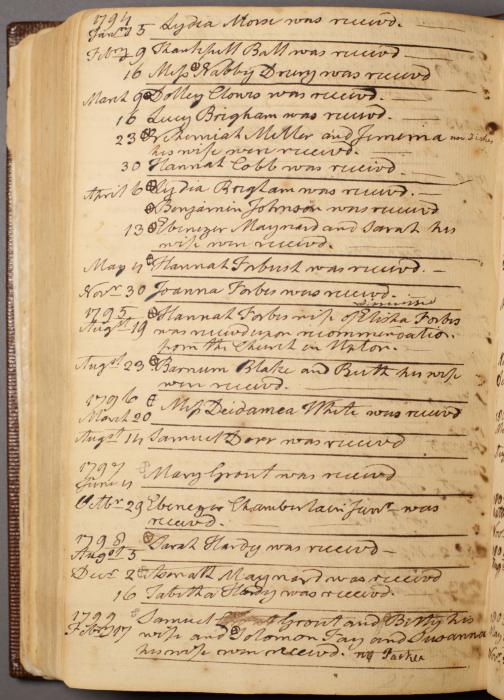 1794
Janry 5 Lydia Morse was receivd.
Febry 9 Thankfull Ball was receivd
16 Miss Nabby Drury was receivd
March 9 Dolley Clowes was receivd.
16 Lucy Brigham was receivd.
23 Nehemiah Meller and Jemima
his wife were receivd.
30 Hannah Cobb was receivd.
April 6 Lydia Brigham was receivd.
Benjamin Johnson was receivd
13 Ebenezer Maynard and Sarah his
wife were receivd.
May 11 Hannah Forbush was receivd.
Novr 30 Joanna Forbes was receivd.
dismissed
1795 Hannah Forbes wife of Elisha Forbes
Augst 19 was receivd upon recommendation
from the Church in Upton.
Augst 23 Barnum Blake and Ruth his wife
were receivd.
1796
March 20 Miss Deidamea White was receivd
Augst 14 Samuel Dorr was receivd
1797
June 11 Mary Grout was receivd
Octbr 29 Ebenezer Chamberlain Junr was
receivd.
1798
August 5 Sarah Hardy was receivd
Decr 2 Asenath Maynard was receivd
16 Tabitha Hardy was receivd.
1799 Samuel Grout and Betty his
Febry 17 wife and Solomon Fay and Susanna
his wife were receivd. Parker